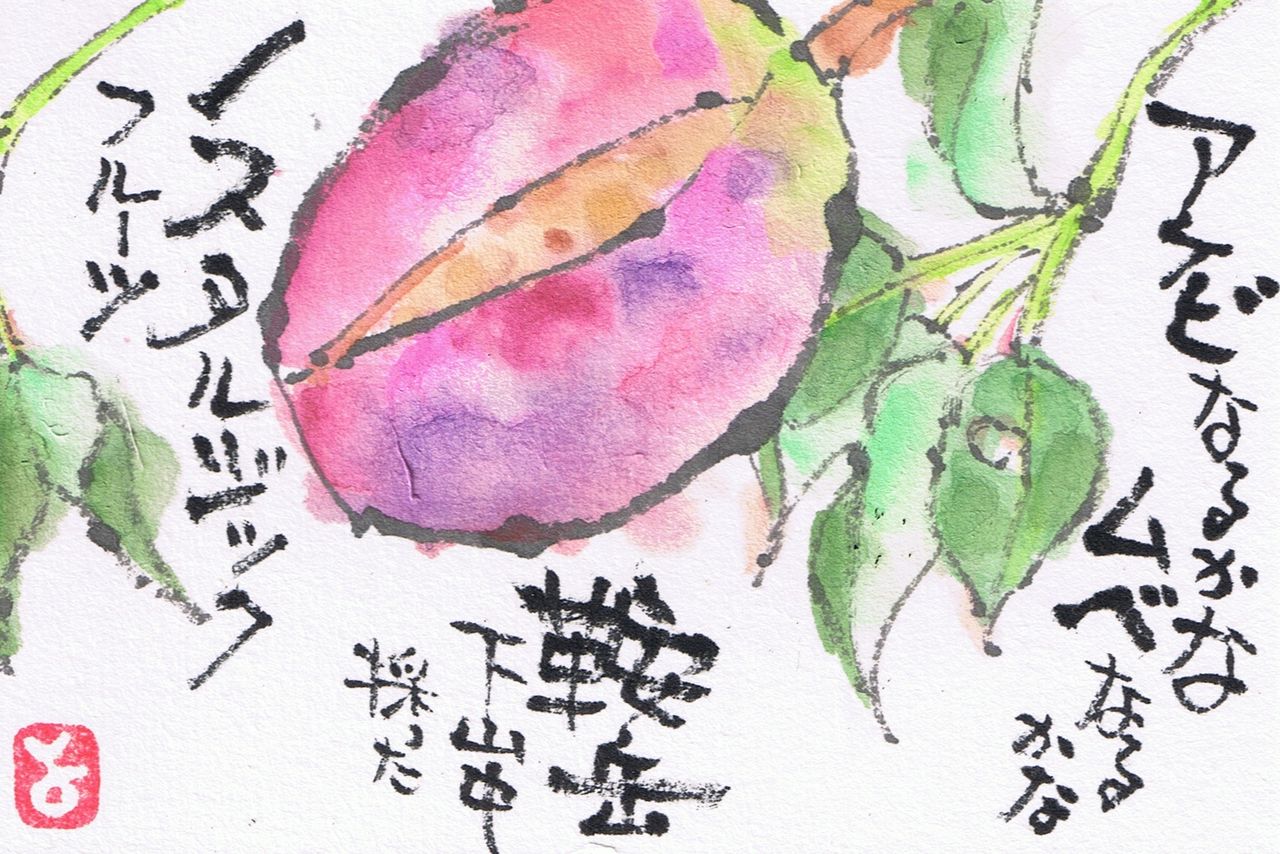 アケビなるかな
ムベなる
かな
鞍岳
下山中
採った
ノスタルジック
フルーツ